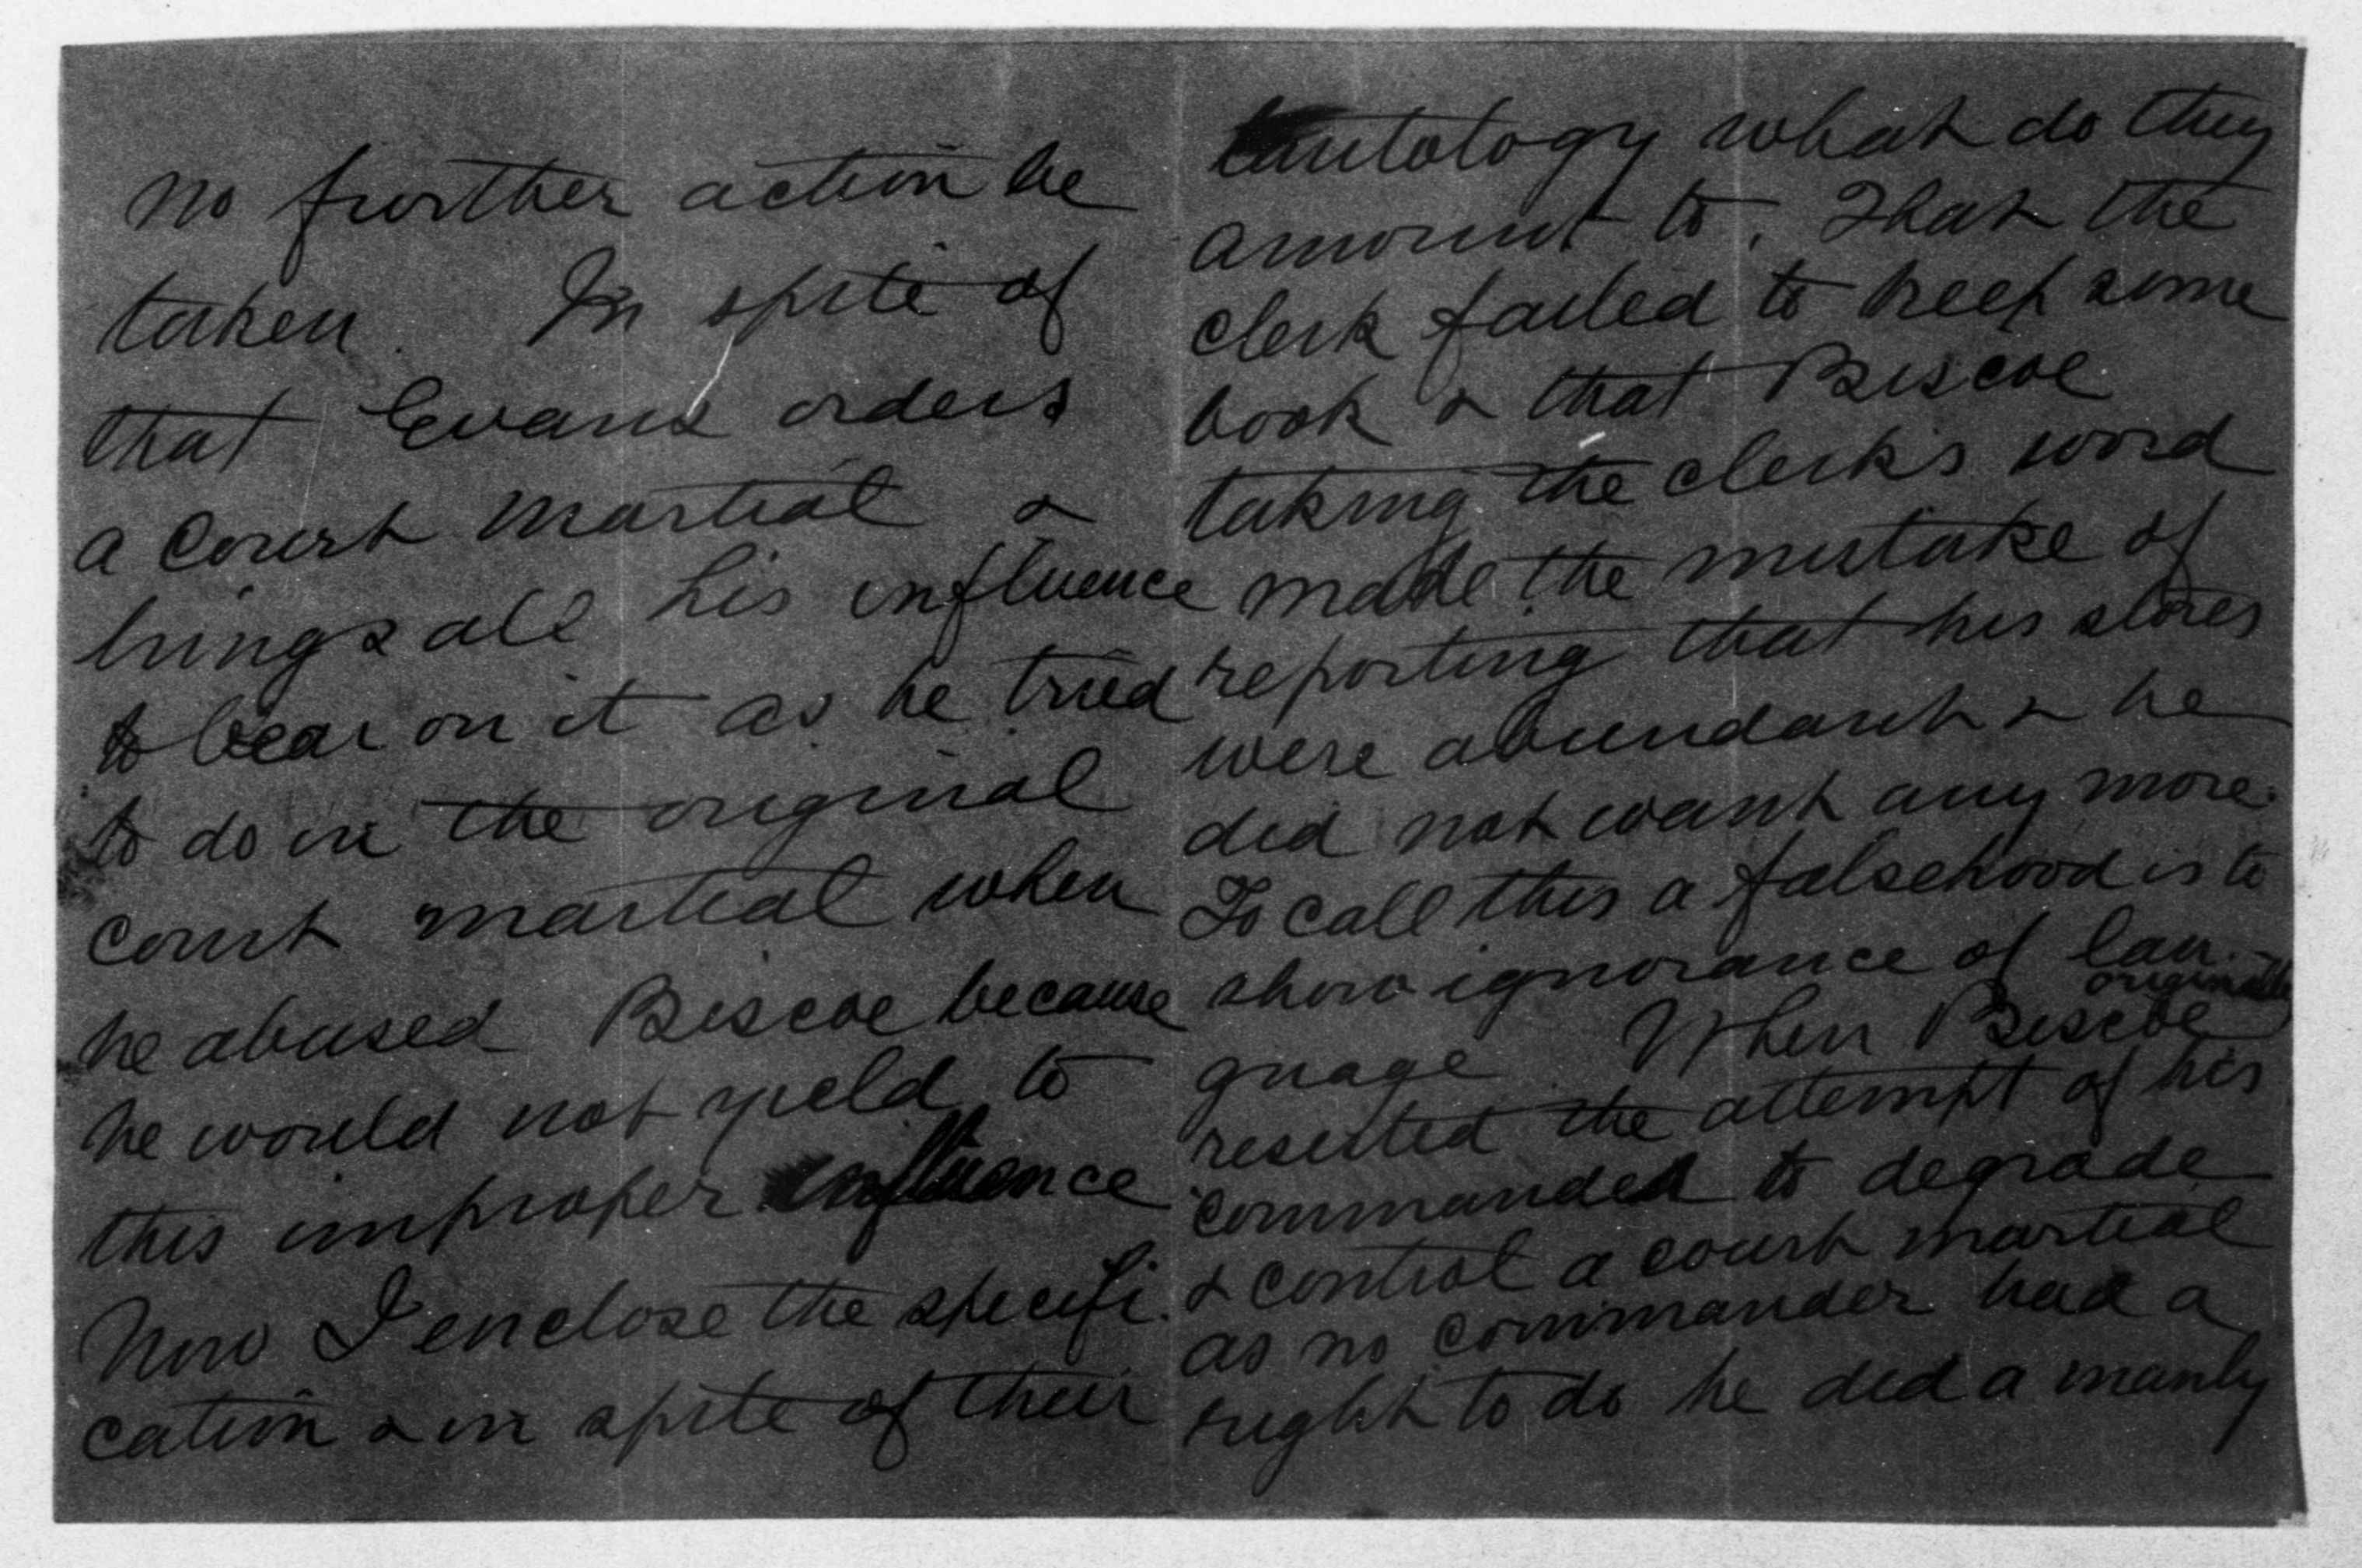 no further action be
taken. In spite of
that Evans orders
a Court Martial &
brings all his influence
to bear on it as he tried
to do in the original
court martial when
he abused Biscoe because
he would not yield to
this improper influence
Now I enclose the specifi-
cation & in spite of their
tautology what do they
amount to. That the
clerk failed to keep some
book & that Biscoe
taking the clerk's word
made the mistake of
reporting that his stores
were abundant & he
did not want any more.
To call this a falsehood is to
show ignorance of lan-
originally
guage. When Biscoe
resented the attempt of his
commander to degrade
& control a court martial
as no commander had a
right to do he did a manly